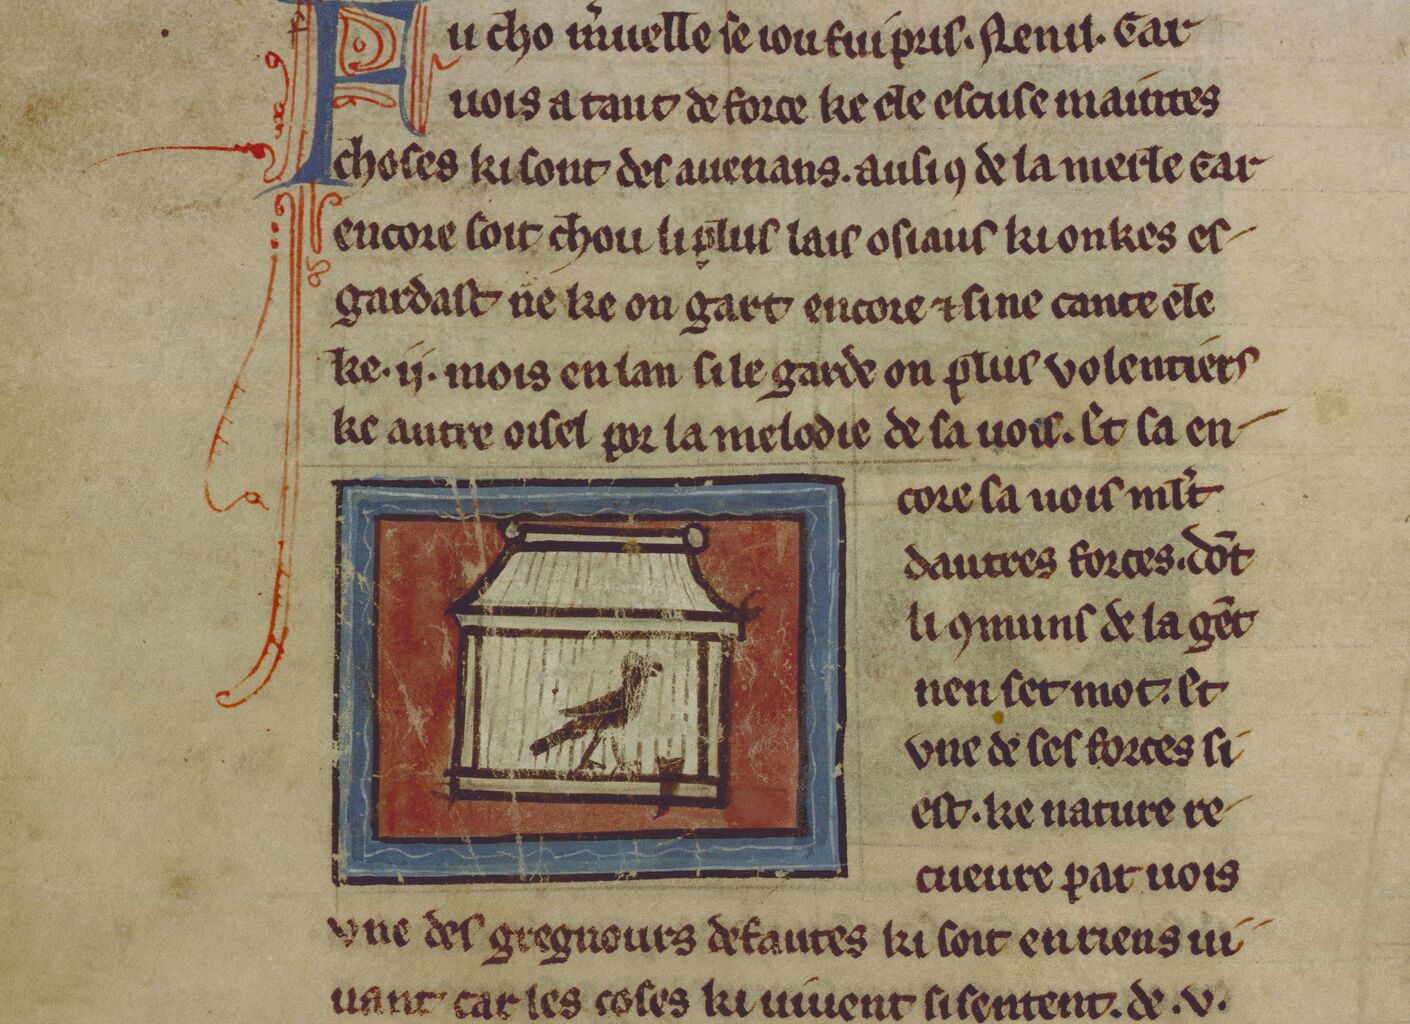 Fu cho m̾uelle se iou fui pris. Nenil. Car
uois a tant de force ke ele escuse maintes
choses ki sont desauenans. ausi ꝯ de la merle Car
encore soit chou li plus lais osiaus ki onkes es-
gardast ne ke on gart encore ⁊ sine cante ele
ke .ij. mois en lan si le garde on plus volentiers
ke autre oisel por la melodie de sa uois. Et sa en-
core sa uois ml̾t
dautres forces. dōt
li ꝯmuns de la gēt
nen set mot. Et
vne de ses forces si
est. ke nature re-
cueure par uois
vne des gregnours defautes ki soit en riens ui
uant car les coses ki uiuent si sentent. de .v.